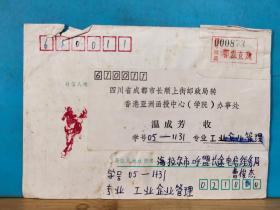 650011
000873
610017
收信人地址
四川省成都市长顺上街邮政局转
香港亚洲函授中心（学院）办事处
温成芳 收
学号05—1131 专业工业企业管理
海拉尔市呼盟
曹俊杰
学号 05—1131
专业 工业企业管理